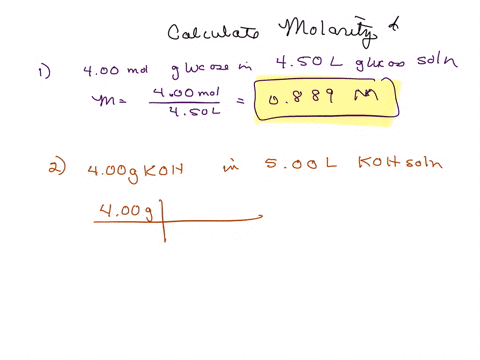 Calculate Molarity
1) 4.00 mol glucose in 4.50 L glucose soln
M = 4.00 mol / 4.50 L = 0.889 M
2) 4.00g KOH in 5.00 L KOH soln
4.00 g